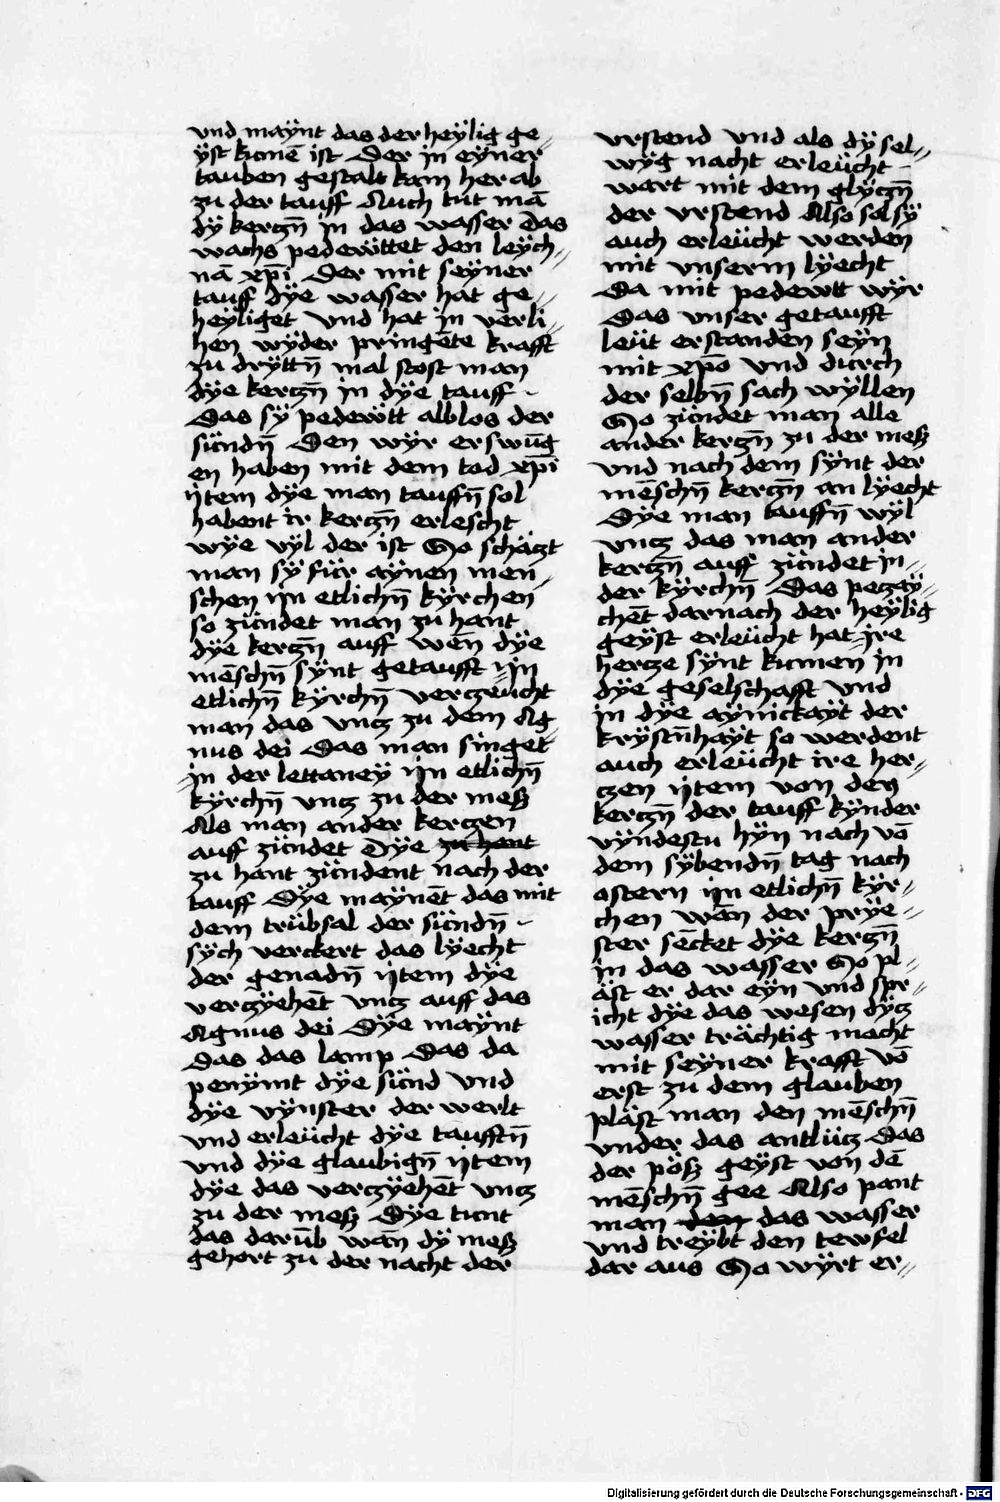 vnd maÿnt das der heÿlig ge⸗
ÿst kumē ist Der in eÿner
tauben gestalt kam her ab
zu der tauff Auch tut mā
dÿ kerczn̄ in das wasser Das
wachs pedewttet den leÿch⸗
nā xp̄i Der mit seÿner
tauff dÿe wasser hat ge⸗
heÿliget vnd hat in verli⸗
hen wÿder pringēte krafft
zu drÿttn̄ mal stost man
dÿe kerczn̄ in dÿe tauff -
Das sÿ pedewtt alblos der
sündn̄ Den wÿr erswūg
en haben mit dem tod xp̄i
ijtem dÿe man tauffn̄ sol
habent ir kerczn̄ erlescht
wÿe vÿl der ist So schäczt
man sÿ für aÿnen men⸗
schen ijn etlichn̄ kÿrchen
so zündet man zu hant
dÿe kerczn̄ auff wēn dÿe
mēschn̄ sÿnt getaufft ijn
etlichn̄ kÿrchn̄ verczeücht
man das vncz zu dem Ag
nus dei Das man singet
⸗in der lettaneÿ ijn etlichn̄
kÿrchn̄ vncz zu der meß
Als man ander kerczen
auff zündet Dÿe zu hant
zu hant zündent nach der
tauff Dÿe maÿnēt das mit
dem trübsal der sündn̄ -
sÿch verckert das lÿecht
der genadn̄ ijtem dÿe
verczÿehēt vncz auff das
Agnus dei Dÿe maÿnt
Das das lamp Das da
penÿmt dÿe sünd vnd
dÿe vÿnster der werlt
vnd erleücht dÿe taufftn̄
vnd dÿe glaubign̄ ijtem
dÿe das verczÿehēt vncz
zu der meß Dÿe tunt
das darūb wān dÿ meß
gehort zu der nacht der
vrstend vnd als dÿ sel⸗
wÿg nacht erleücht -
wart mit dem glÿczn̄
der vrstend Also sol sÿ
auch erleücht werden
mit vnserm lÿecht
Da mit pedewtt wÿr
Das vnser getaufft
leüt erstanden seÿn
mit xp̄o vnd durch
der selbn̄ sach wÿllen
So zündet man alle
ander kerczn̄ zu der meß
vnd nach dem sÿnt der
mēschn̄ kerczn̄ an lÿecht
Dÿe man tauffn̄ wÿl
vncz das man ander
kerczn̄ auff zündet in⸗
der kÿrchn̄ Das peczaÿ⸗
chēt darnach der heÿlig
geÿst erleücht hat ire
hercze sÿnt kumen in
dÿe geselschafft vnd
in dÿe aÿnickaÿt der
krÿstn̄haÿt so werdent
auch erleücht ire her⸗
czen ijtem von den
kerczn̄ der tauff kÿnder
vÿndestu hÿn nach vō
dem sÿbendn̄ tag nach
ostern ijn etlichn̄ kÿr⸗
chen wān der prÿe⸗
ster sēcket dÿe kerczn̄
in das wasser So pl⸗
äst er dar eÿn vnd spr⸗
icht dÿe das wesen dÿcz
wasser trächtig macht
mit seÿner krafft vō
erst zu dem glauben
pläst man den mēschn̄
vnder das antlücz Das
der pöß geÿst von dē
mēschn̄ gee Also pant
man den das wasser
vnd treÿbt den tewfel
dar aus So wÿrt er⸗
Digitalisierung gefördert durch die Deutsche Forschungsgemeinschaft - DFG